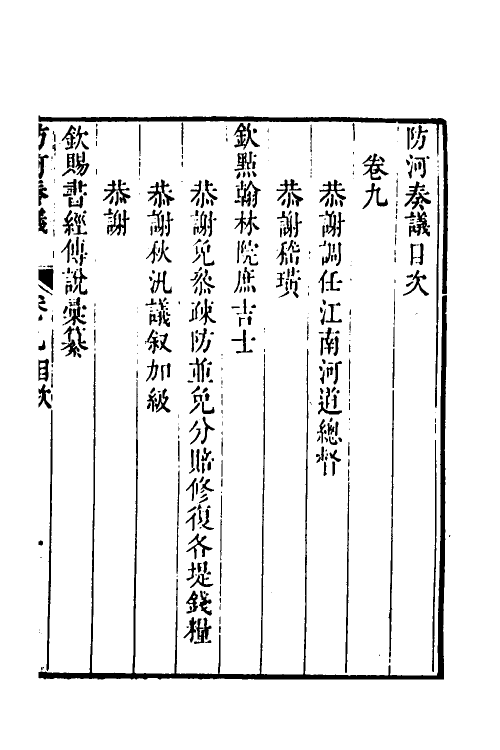 防河奏議目次
卷九
恭謝調任江南河道總督
恭謝嵇璜
欽㸃翰林院庶吉士
恭謝免叅疎防並免分賠修復各堤錢糧
恭謝秋汛議叙加級
恭謝
欽賜書經傳說彙纂
防河奏議 卷九目次